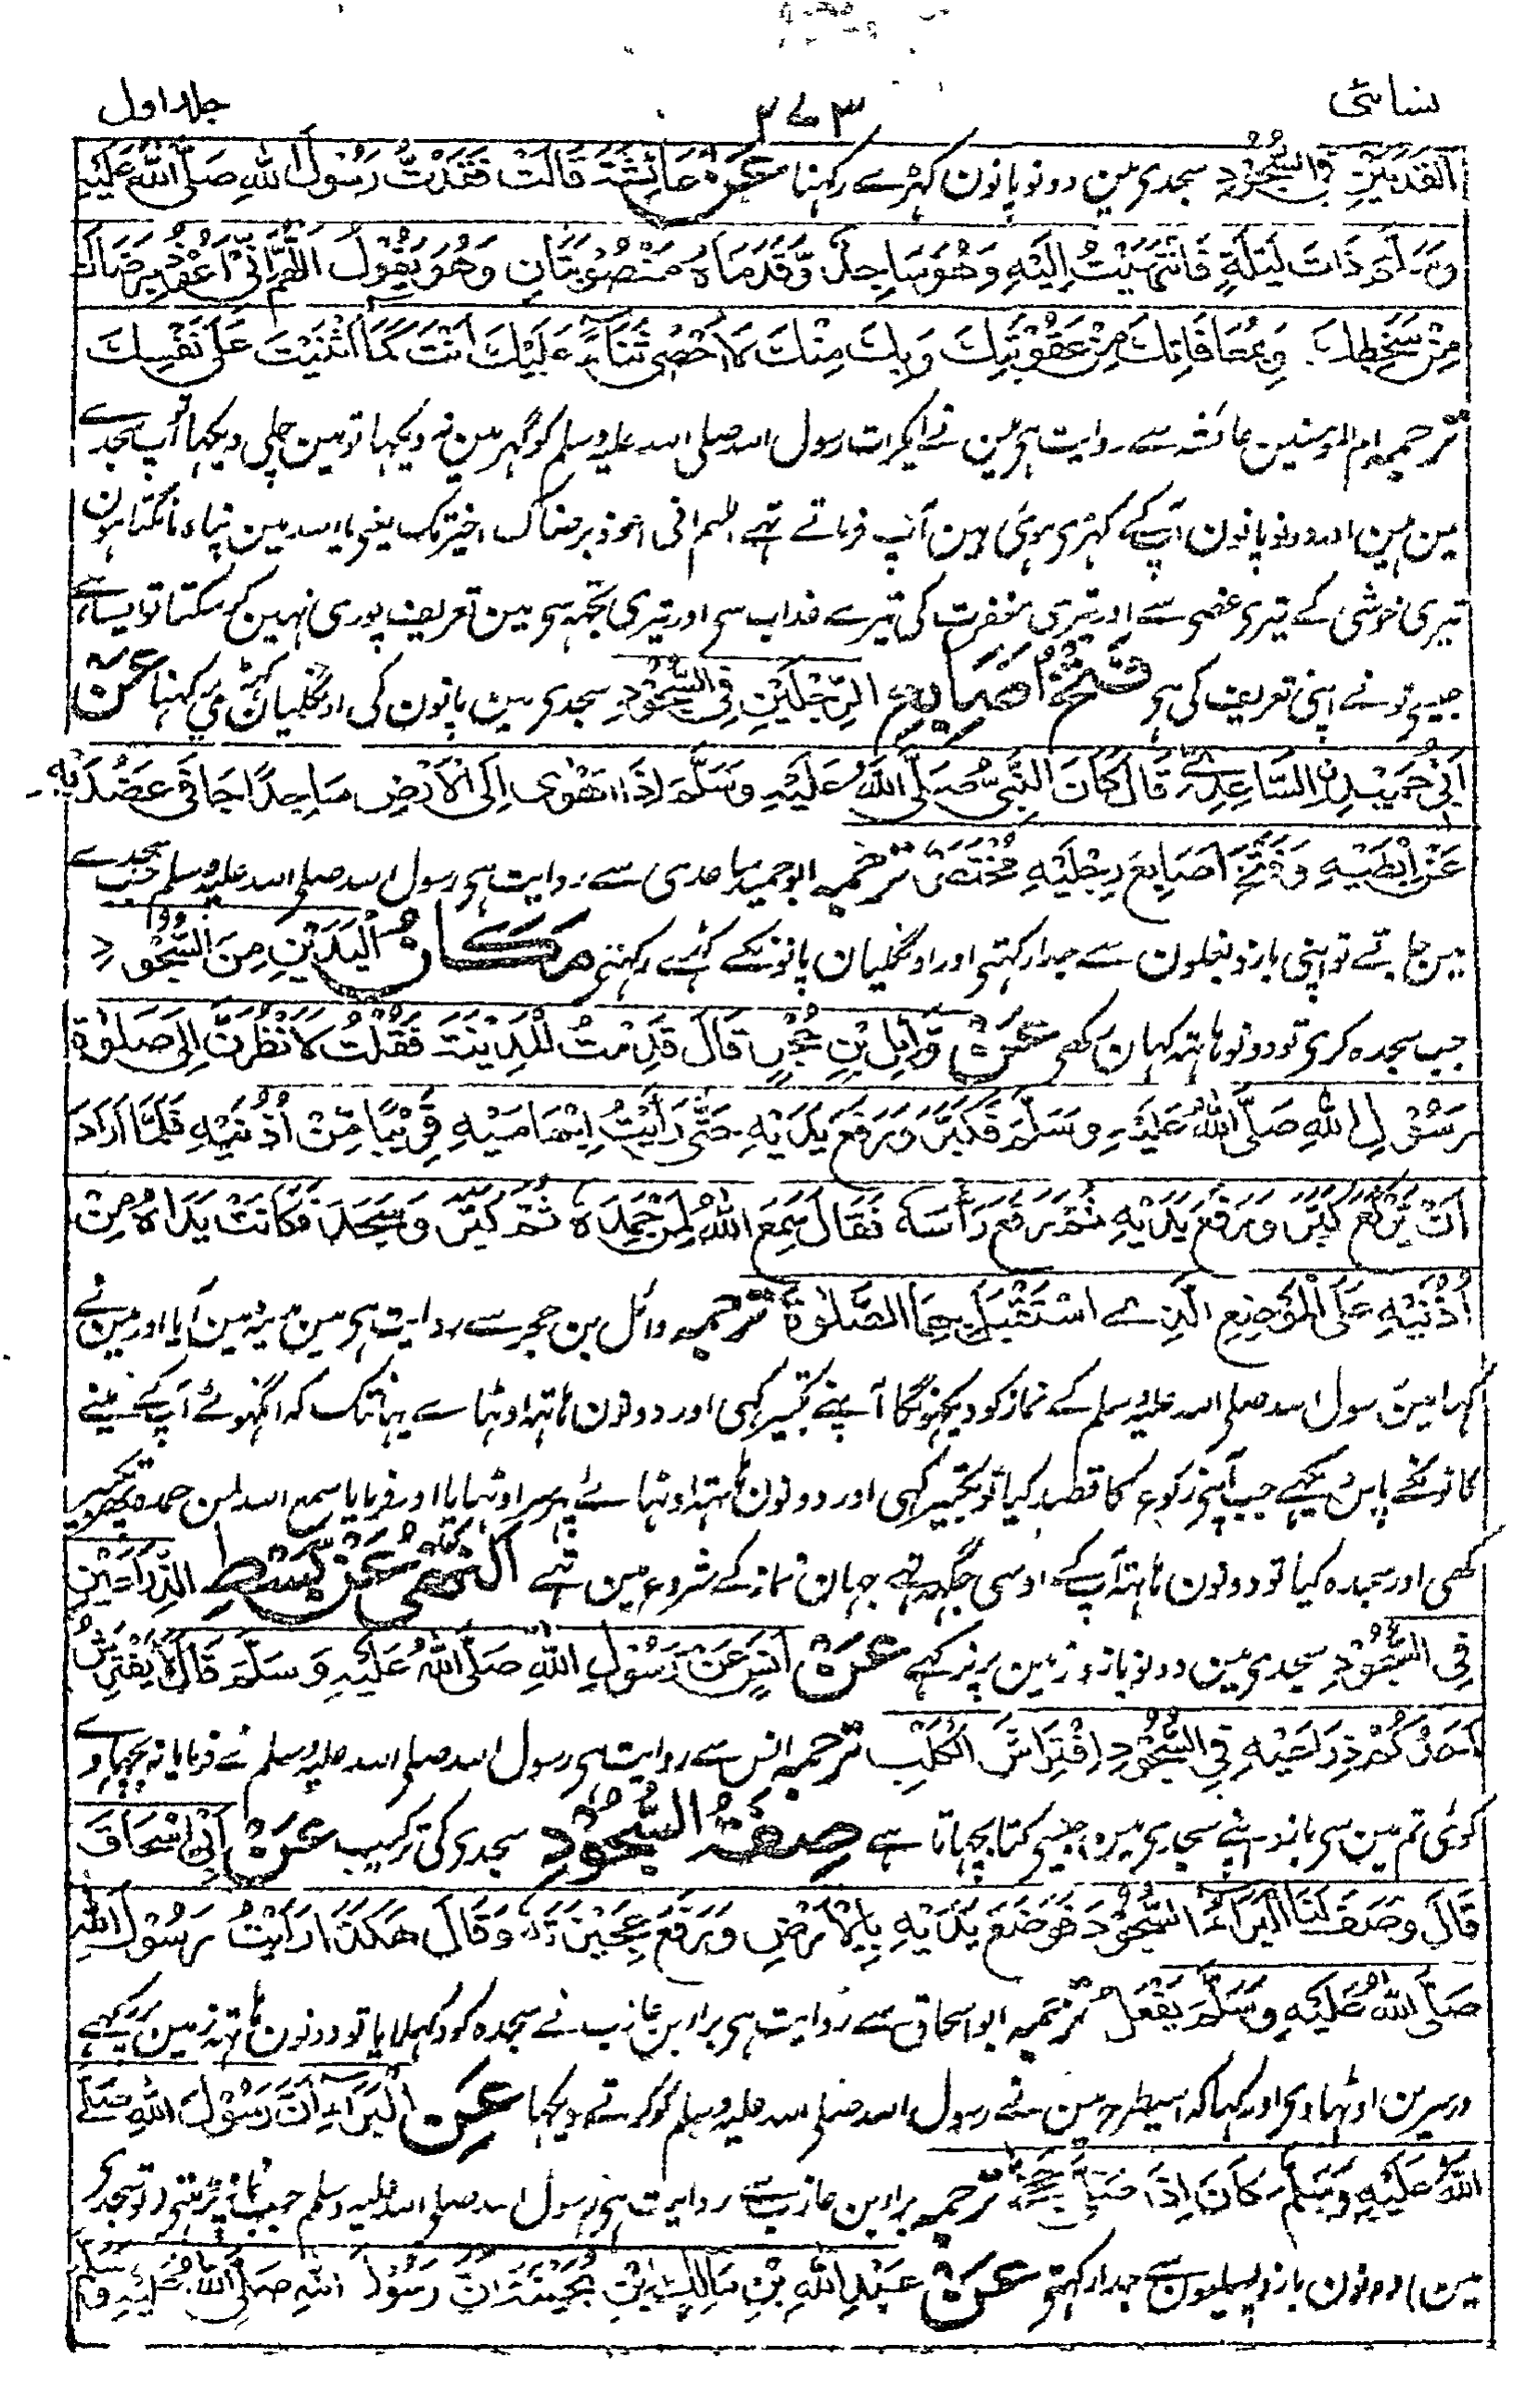 نسائی ۳۷۳ جلد اول
الْقَدَمَيْنِ فِي السُّجُوْدِ سجدی مین دونو پانون کہڑے رکہنا عَنْ عَائِشَةَ قَالَتْ فَقَدْتُّ رَسُوْلَ اللهِ صَلَّى اللهُ عَلَيْهِ
وَسَلَّمَ ذَاتَ لَيْلَةٍ فَانْتَهَيْتُ اِلَيْهِ وَهُوَ سَاجِدٌ وَّقَدَمَاهُ مَنْصُوْبَتَانِ وَهُوَ يَقُوْلُ اَللّٰهُمَّ اِنِّىْ اَعُوْذُ بِرِضَاكَ
مِنْ سَخَطِكَ وَبِمُعَافَاتِكَ مِنْ عَقُوْبَتِكَ وَبِكَ مِنْكَ لَا اُحْصِىْ ثَنَاءً عَلَيْكَ اَنْتَ كَمَا اَثْنَيْتَ عَلٰى نَفْسِكَ
ترجمہ ام المومنین عائشہ سے روایت ہی مین نے ایکرات رسول اللہ صلی اللہ علیہ وسلم کو گہر مین نہ دیکہا تو مین چلی دیکہا تو آپ سجدے
مین ہین اور دونو پانون آپ کے کہڑی ہوئی ہین آپ فرماتے تہے اللہم انی اعوذ برضاک اخیر تک یعنی یا اللہ مین پناہ مانگتا ہون
تیری خوشی کے تیری غصی سے اور تیری مغفرت کی تیرے عذاب سی اور تیری تجہہ سی مین تعریف پوری نہین کر سکتا تو ایسا ہے
جیسی تو نے اپنی تعریف کی ہی فَتْخُ اَصَابِعِ الرِّجْلَيْنِ فِي السُّجُوْدِ سجدی مین پانون کی اونگلیان کہڑی رکہنا عَنْ
اَبِىْ حُمَيْدِ ِالسَّاعِدِىِّ قَالَ كَانَ النَّبِىُّ صَلَّى اللهُ عَلَيْهِ وَسَلَّمَ اِذَا اَهْوٰى اِلَى الْاَرْضِ سَاجِدًا جَافٰى عَضُدَيْهِ
عَنْ اِبْطَيْهِ وَفَتَخَ اَصَابِعَ رِجْلَيْهِ مُخْتَصَرٌ ترجمہ ابو حمید ساعدی سے روایت ہی رسول اللہ صلی اللہ علیہ وسلم جب سجدے
مین جاتے تو اپنی بازو بغلون سے جدا رکہتی اور اونگلیان پانونکے کہڑے رکہتی مَكَانُ الْيَدَيْنِ مِنَ السُّجُوْدِ
جب سجدہ کری تو دونو ہاتہہ کہان رکہی عَنْ وَّائِلِ بْنِ حُجْرٍ قَالَ قَدِمْتُ الْمَدِيْنَةَ فَقُلْتُ لَاَنْظُرَنَّ اِلٰى صَلٰوةِ
رَسُوْلِ اللهِ صَلَّى اللهُ عَلَيْهِ وَسَلَّمَ فَكَبَّرَ وَرَفَعَ يَدَيْهِ حَتّٰى رَاَيْتُ اِبْهَامَيْهِ قَرِيْبًا مِّنْ اُذُنَيْهِ فَلَمَّا اَرَادَ
اَنْ يَّرْكَعَ كَبَّرَ وَرَفَعَ يَدَيْهِ ثُمَّ رَفَعَ رَأْسَهٗ فَقَالَ سَمِعَ اللهُ لِمَنْ حَمِدَهٗ ثُمَّ كَبَّرَ وَسَجَدَ فَكَانَتْ يَدَاهُ مِنْ
اُذُنَيْهِ عَلَى الْمَوْضِعِ الَّذِىْ اسْتَقْبَلَ بِهِمَا الصَّلٰوةَ ترجمہ وائل بن حجر سے روایت ہی مین مدینہ مین آیا اور مین نے
کہا مین رسول اللہ صلی اللہ علیہ وسلم کے نماز کو دیکہونگا آپنے تکبیر کہی اور دونون ہاتہہ اوٹہائے یہانتک کہ انگہوٹے آپ کے مینے
کانونکے پاس دیکہے جب آپنے رکوع کا قصد کیا تو تکبیر کہی اور دونون ہاتہہ اوٹہائے پہر سر اوٹہایا اور فرمایا سمع اللہ لمن حمدہ پہر تکبیر
کہی اور سجدہ کیا تو دونون ہاتہہ آپ کے اوسی جگہہ تہے جہان نماز کے شروع مین تہے اَلنَّهْىُ عَنْ بَسْطِ الذِّرَاعَيْنِ
فِى السُّجُوْدِ سجدی مین دونو بازو زمین پر نرکہے عَنْ اَنَسٍ عَنْ رَّسُوْلِ اللهِ صَلَّى اللهُ عَلَيْهِ وَسَلَّمَ قَالَ لَا يَفْتَرِشْ
اَحَدُكُمْ ذِرَاعَيْهِ فِى السُّجُوْدِ اِفْتِرَاشَ الْكَلْبِ ترجمہ انس سے روایت ہی رسول اللہ صلی اللہ علیہ وسلم نے فرمایا نہ بچہاوے
کوئی تم مین سی بازو اپنے سجدی مین جیسی کتا بچہاتا ہے صِفَةُ السُّجُوْدِ سجدی کی ترکیب عَنْ اَبِىْ اِسْحَاقَ
قَالَ وَصَفَ لَنَا الْبَرَاءُ السُّجُوْدَ فَوَضَعَ يَدَيْهِ بِالْاَرْضِ وَرَفَعَ عَجِيْزَتَهٗ وَقَالَ هٰكَذَا رَاَيْتُ رَسُوْلَ اللهِ
صَلَّى اللهُ عَلَيْهِ وَسَلَّمَ يَفْعَلُ ترجمہ ابو اسحاق سے روایت ہی براء بن عازب نے سجدہ کو دکہلایا تو دونون ہاتہہ زمین پر رکہے
اور سرین اوٹہاوی اور کہا کہ اسیطرح مین نے رسول اللہ صلی اللہ علیہ وسلم کو کرتے دیکہا عَنِ الْبَرَاءِ اَنَّ رَسُوْلَ اللهِ صَلَّى
اللهُ عَلَيْهِ وَسَلَّمَ كَانَ اِذَا صَلّٰى جَخّٰى ترجمہ براء بن عازب سے روایت ہی رسول اللہ صلی اللہ علیہ وسلم جب نماز پڑہتی (تو سجدی
مین) دونون بازو پسلیون سے جدا رکہتی عَنْ عَبْدِ اللهِ بْنِ مَالِكٍ ابْنِ بُحَيْنَةَ اَنَّ رَسُوْلَ اللهِ صَلَّى اللهُ عَلَيْهِ وَسَلَّمَ